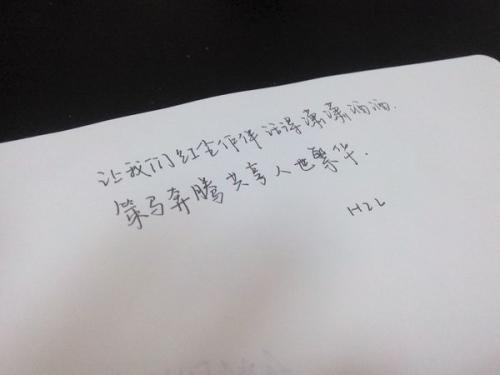 让我们红尘作伴活得潇潇洒洒.
策马奔腾共享人世繁华.
HZL